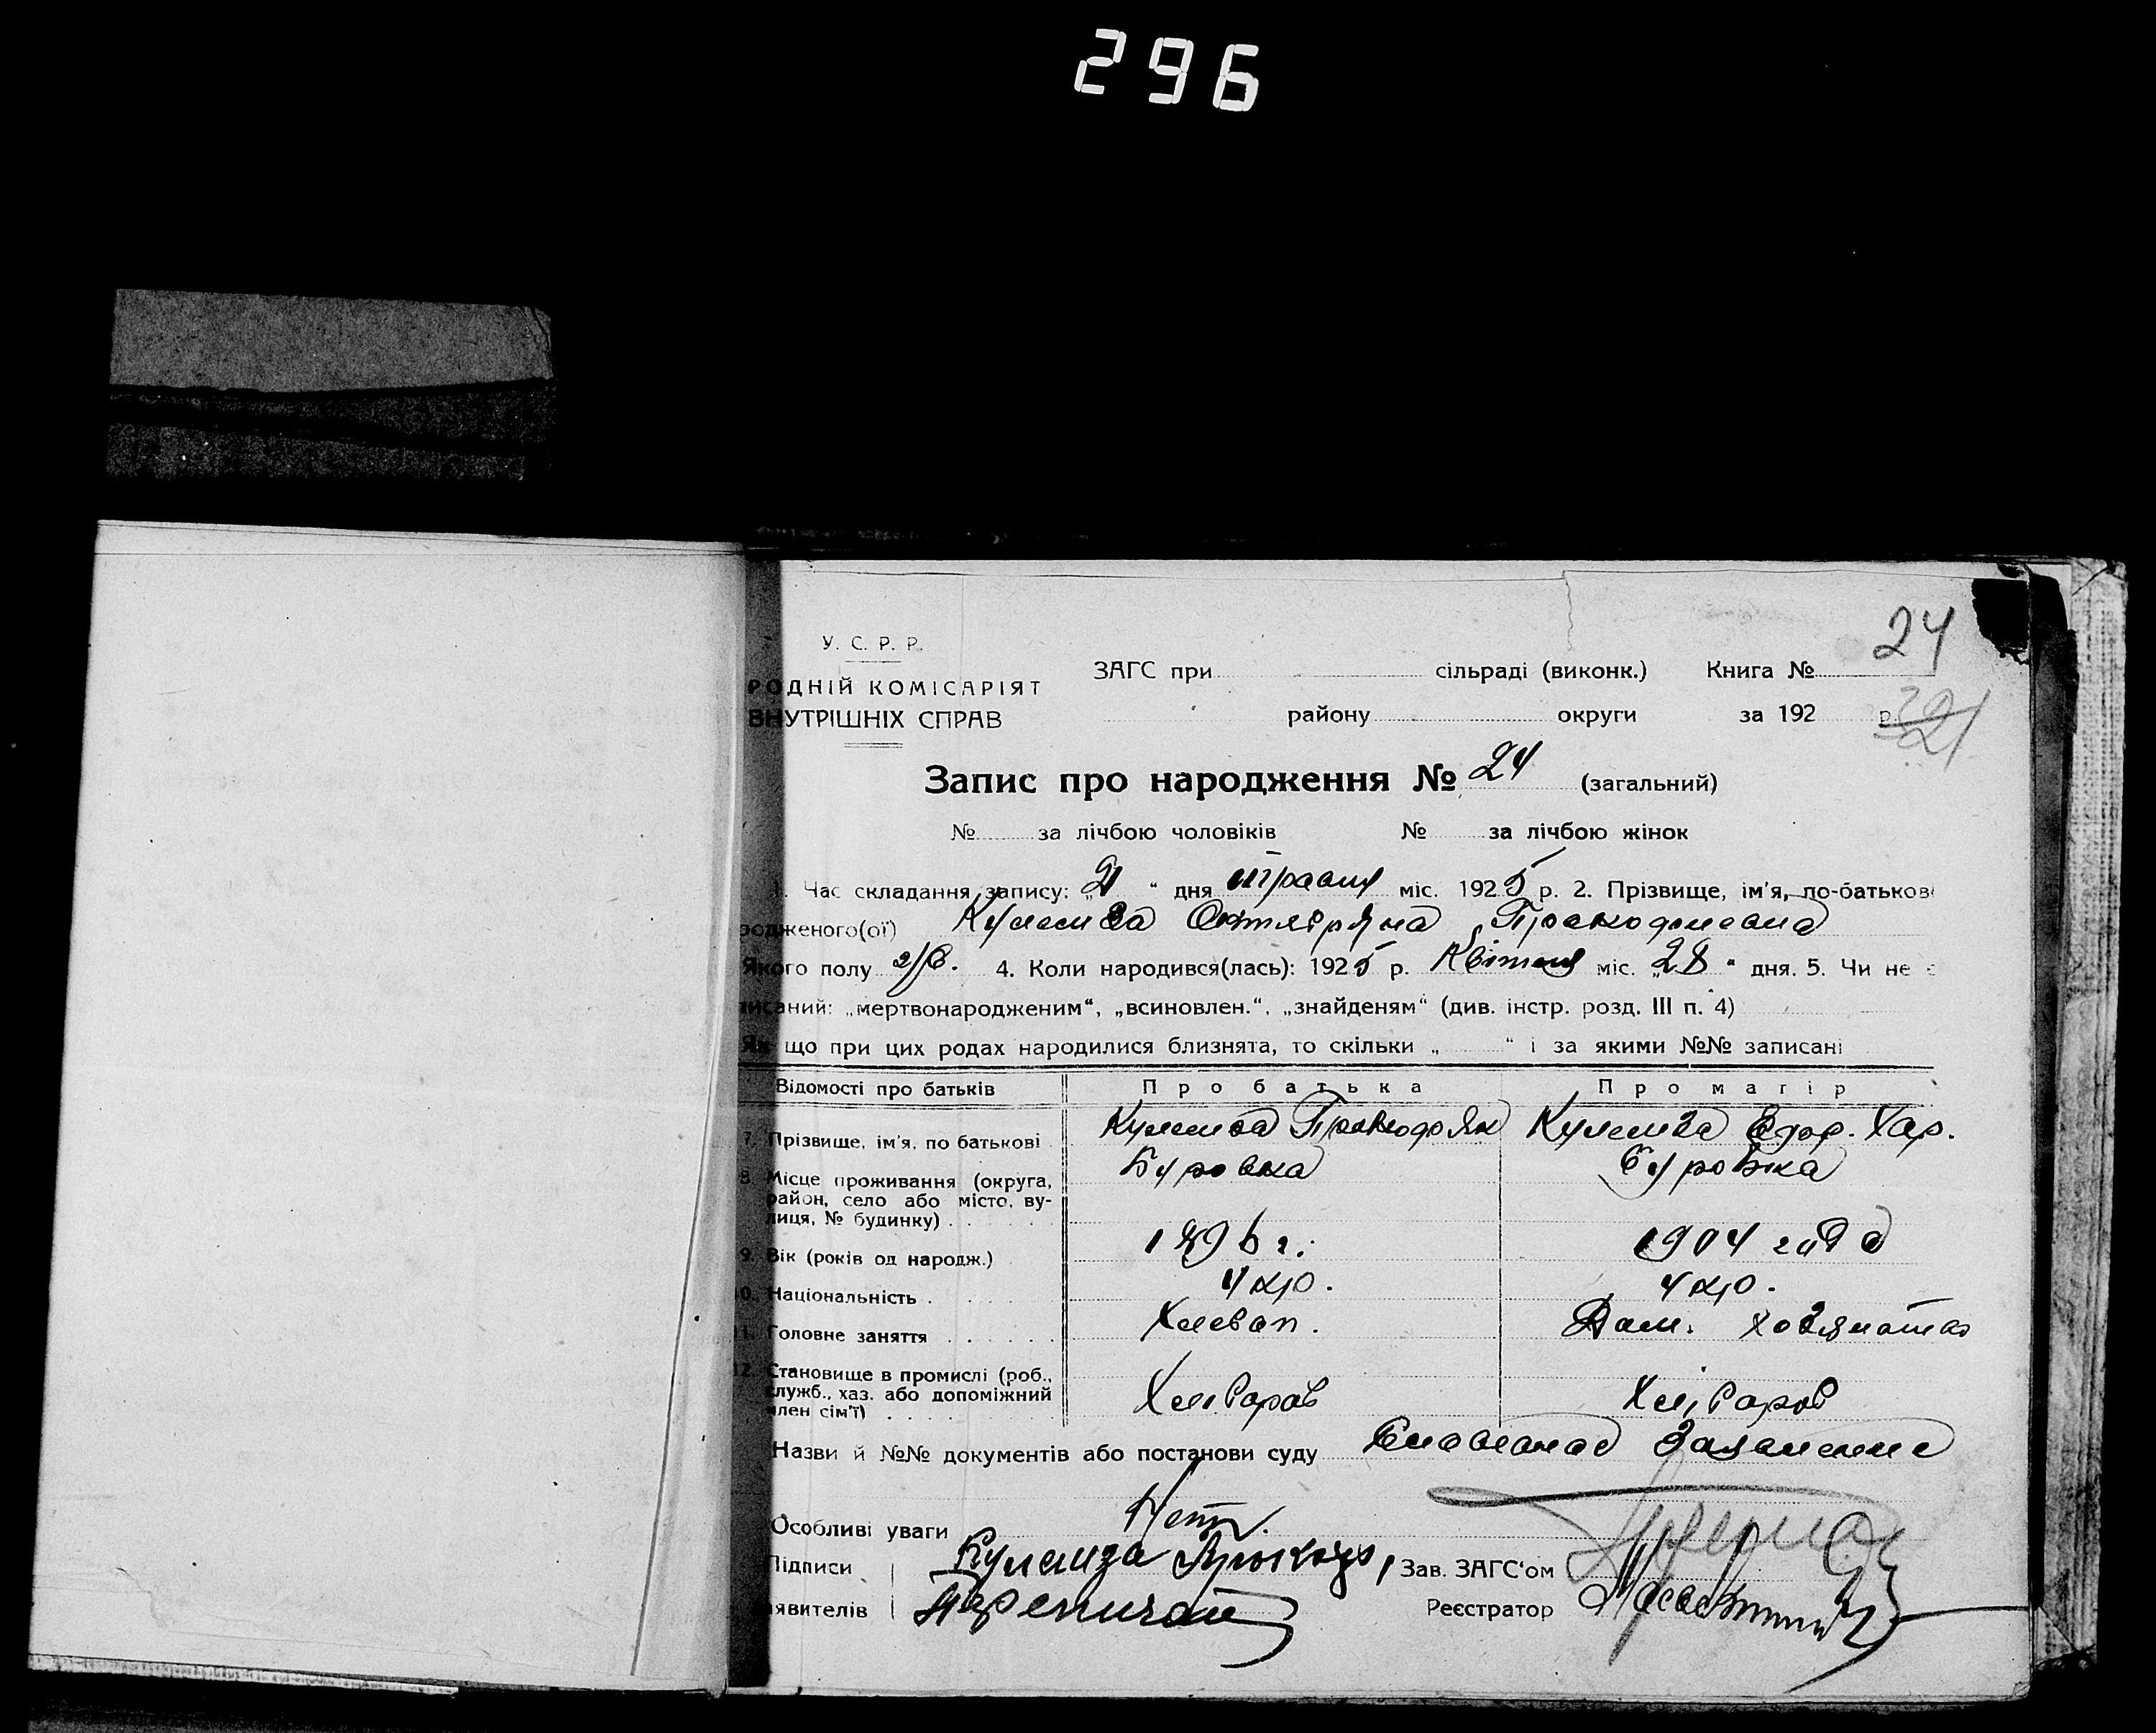 296
24
У. С. Р. Р.
РОДНІЙ КОМІСАРІЯТ
ВНУТРІШНІХ СПРАВ
ЗАГС при сільраді (виконк.) Книга №
району округи за 192 р.
321
Запис про народження № 24 (загальний)
№ за лічбою чоловіків № за лічбою жінок
1. Час складання запису: „21“ дня травня міс. 1925 р. 2. Прізвище, ім'я, по-батькові
родженого(ої) Кулемза Октябряна Прокофиевна
Якого полу 4. Коли народився(лась): 1925 р. Квітня міс. „28“ дня. 5. Чи не є
писаний: „мертвонародженим“, „всиновлен.“, „знайденям“ (див. інстр. розд. III п. 4)
Як що при цих родах народилися близнята, то скільки „ “ і за якими №№ записані
Відомості про батьків Про батька Про матір
7. Прізвище, ім'я, по батькові Кулемза Кулемза Хар.
8. Місце проживання (округа, район, село або місто, вулиця, № будинку) Буровка Буровка
9. Вік (років од народж.) 1896 г. 1904 года
10. Національність укр. укр.
11. Головне заняття Хлебоп. Дом. хозяйка
12. Становище в промислі (роб., служб., хаз. або допоміжний член сім'ї) Хлібороб Хлібороб
Назви й №№ документів або постанови суду Словесное Заявление
Особливі уваги Нет.
Підписи Кулемза Зав. ЗАГС'ом
явителів Реєстратор